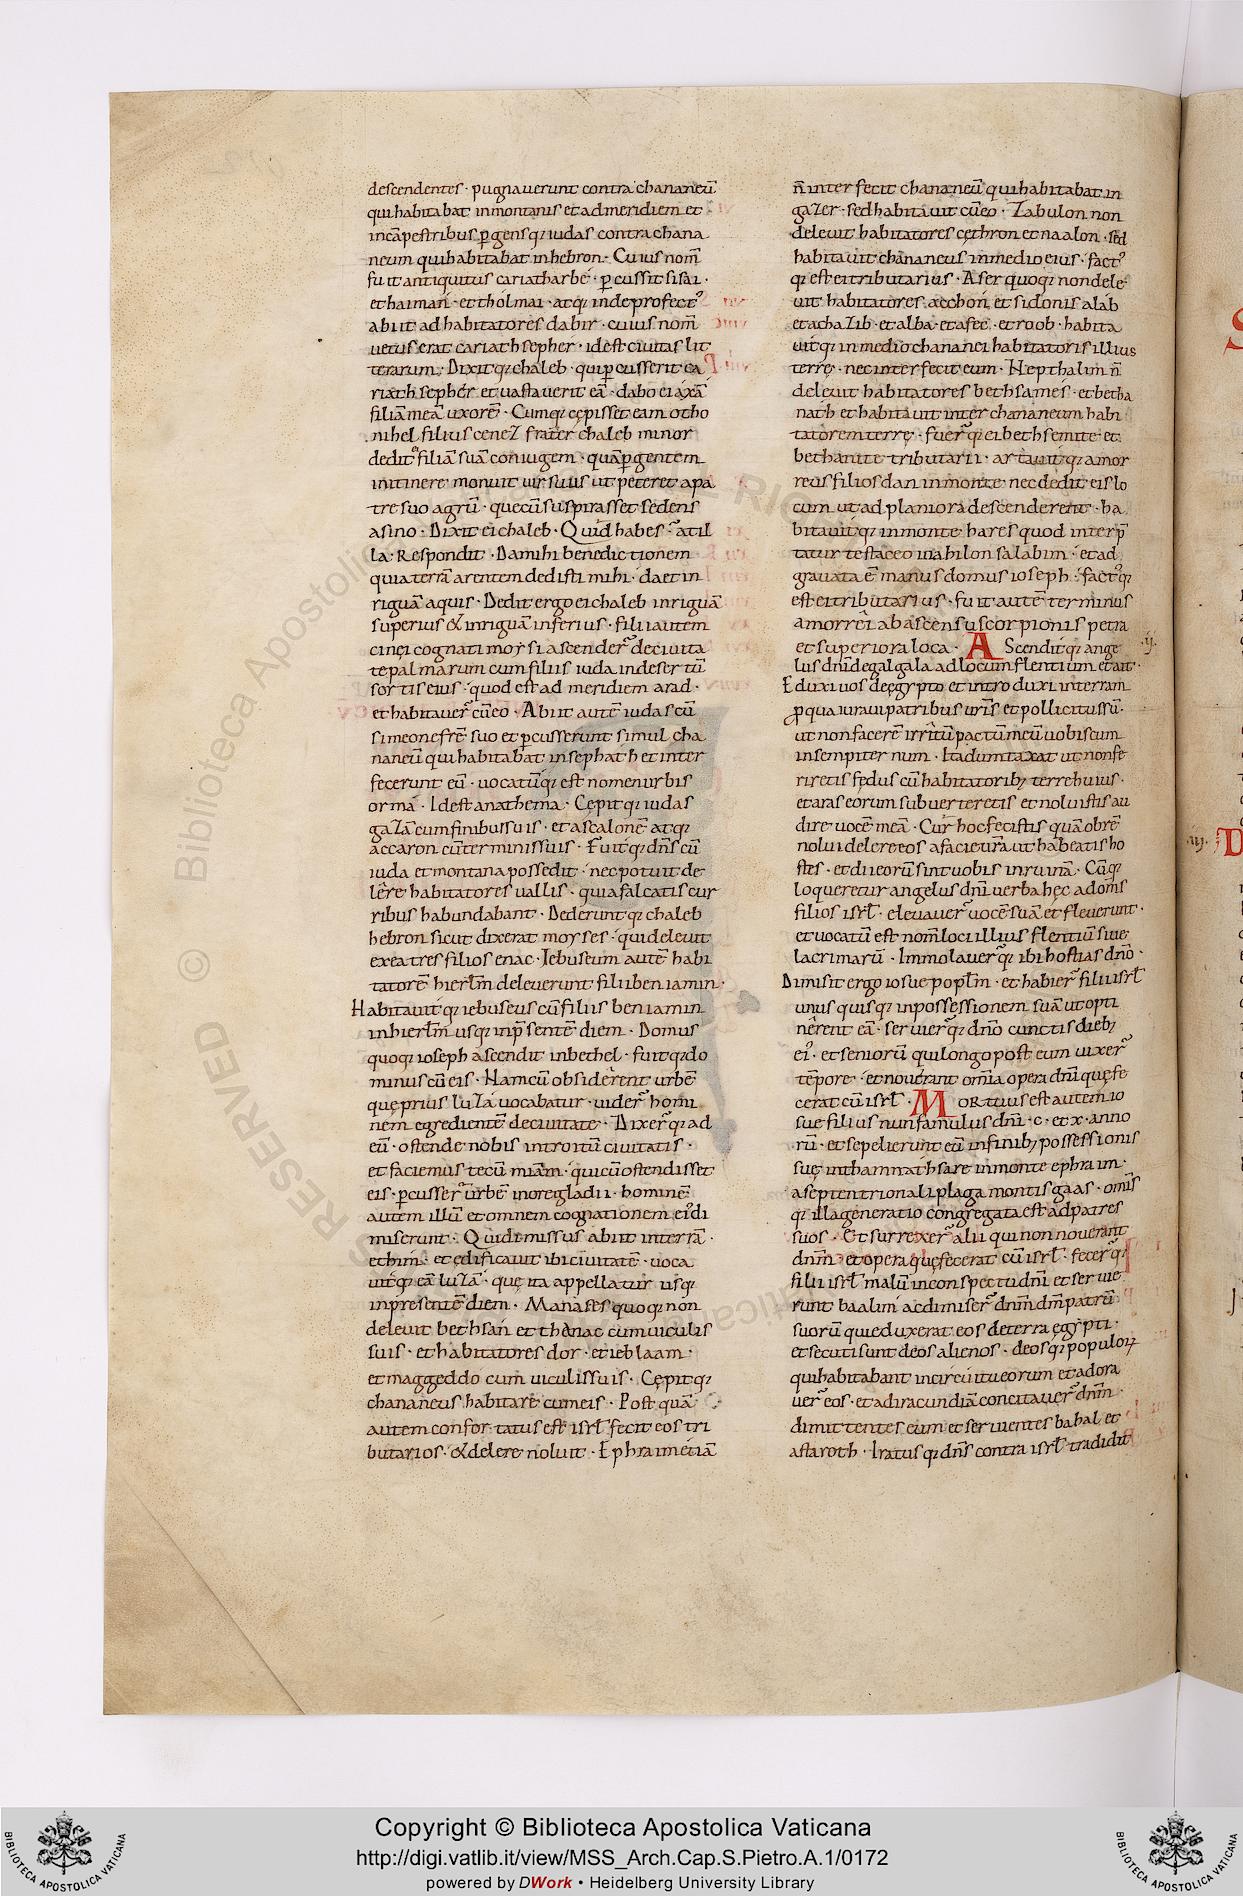 descendentes · pugnauerunt contra chananeū
qui habitabat in montanis et ad meridiem et
in cāpestribus ꝑgensqꝫ iudas contra chana
neum qui habitabat in hebron · Cuius nom̄
fuit antiquitus cariatharbe · ꝑcussit sisai ·
et haiman · et tholmai · atqꝫ inde profectꝰ
abiit ad habitatores dabir · cuius nom̄
uetus erat cariath sepher · id est ciuitas lit
terarum · Dixitqꝫ chaleb · qui ꝑcusserit ca
riath sepher et uastauerit eā · dabo ei axā
filiā meā uxorē · Cumqꝫ cępisset eam otho
nihel filius cenez frater chaleb minor
dedit ei filiā suā coniugem · quā ꝑgentem
in itinere monuit uir suus ut peteret a pa
tre suo agrū · que cū suspirasset sedens
asino · Dixit ei chaleb · Quid habes · at il
la · Respondit · Da mihi benedictionem
quia terrā arentem dedisti mihi · da et in
riguā aquis · Dedit ergo ei chaleb inriguā
superius & inriguā inferius · filii autem
cinęi cognati moysi ascenderᷓ de ciuita
te palmarum cum filiis iuda in desertū
sortis eius · quod est ad meridiem arad ·
et habitauerᷓ cū eo · Abiit autē iudas cū
simeone frē suo et ꝑcusserunt simul cha
naneū qui habitabat in sephath et inter
fecerunt eū · uocatūqꝫ est nomen urbis
orma · Id est anathema · Cępitqꝫ iudas
gazā cum finibus suis · et ascalonē atqꝫ
accaron cū terminis suis · Fuitqꝫ dn̄s cū
iuda et montana possedit · nec potuit de
lere habitatores uallis · quia falcatis cur
ribus habundabant · Dederuntqꝫ chaleb
hebron sicut dixerat moyses · qui deleuit
ex ea tres filios enac · Iebuseum autē habi
tatorē hierl̄m deleuerunt filii beniamin ·
Habitauitqꝫ iebuseus cū filiis beniamin
in hierl̄m usqꝫ in p̄sentē diem · Domus
quoqꝫ ioseph ascendit in bethel · fuitqꝫ do
minus cū eis · Nam cū obsiderent urbē
quę prius luza uocabatur · uiderᷓ homi
nem egredientē de ciuitate · Dixerᷓqꝫ ad
eū · ostende nobis introitū ciuitatis ·
et faciemus tecū miam̄ · qui cū ostendisset
eis · ꝑcusserᷓ urbē in ore gladii · hominē
autem illū et omnem cognationem eiꝰ di
miserunt · Qui dimissus abiit in terrā ·
ethim · et ędificauit ibi ciuitatē · uoca
uitqꝫ eā luzā · quę ita appellatur usqꝫ
in presentē diem · Manases quoqꝫ non
deleuit bethsan et thenac cum uiculis
suis · et habitatores dor · et ieblaam ·
et maggeddo cum uiculis suis · Cępitqꝫ
chananeus habitare cum eis · Post quā
autem confortatus est isrl̄ fecit eos tri
butarios · & delere noluit · Ephraim etiā
n̄ interfecit chananeū qui habitabat in
gazer · sed habitauit cū eo · Zabulon non
deleuit habitatores cęthron et naalon · sed
habitauit chananeus in medio eius · factꝰ
qꝫ est ei tributarius · Aser quoqꝫ non dele
uit habitatores acchon et sidonis alab
et achazib · et alba · et afec · et roob · habita
uitqꝫ in medio chananei habitatoris illius
terrę · nec interfecit eum · Nepthalim n̄
deleuit habitatores bethsames · et betha
nath et habitauit inter chananeum habi
tatorem terrę · fuerᷓqꝫ ei bethsemite et
bethanite tributarii · artauitqꝫ amor
reus filios dan in monte · nec dedit eis lo
cum ut ad planiora descenderent · ha
bitauitqꝫ in monte hares quod interp̄
tatur testaceo in ahilon salabim · et ad
grauata ē manus domus ioseph · factꝰqꝫ
est ei tributarius · fuit autē terminus
amorrei ab ascensu scorpionis petra
et superiora loca · Ascenditqꝫ ange · ij ·
lus dn̄i de galgala ad locum flentium et ait ·
Eduxi uos de ęgypto et introduxi in terram
ꝓ qua iuraui patribus uris̄ et pollicitus sū ·
ut non facerē irritū pactū meū uobiscum
in sempiternum · Ita dumtaxat ut non fe
riretis fędus cū habitatoribꝫ terre huius ·
et aras eorum subuerteretis et noluistis au
dire uocē meā · Cur hoc fecistis quā obrē
nolui delere eos a facie urā ut habeatis ho
stes · et dii eorū sint uobis in ruinā · Cūqꝫ
loqueretur angelus dn̄i uerba hęc ad omīs
filios isrl̄ · eleuauerᷓ uocē suā et fleuerunt ·
et uocatū est nom̄ loci illius flentiū siue
lacrimarū · Immolauerᷓqꝫ ibi hostias dn̄o ·
Dimisit ergo iosue popl̄m · et habierᷓ filii isrl̄
unusquisqꝫ in possessionem suā ut opti
nerent eā · seruierᷓqꝫ dn̄o cunctis diebꝫ
eiꝰ · et seniorū qui longo post eum uixerᷓ
tēpore · et nouerant om̄ia opera dn̄i quę fe
cerat cū isrl̄ · Mortuus est autem io
sue filius nun famulus dn̄i · c · et x · anno
rū · et sepelierunt eū in finibꝫ possessionis
suę in thamnathsare in monte ephraim ·
a septentrionali plaga montis gaas · omīs
qꝫ illa generatio congregata est ad patres
suos · Et surrexerᷓ alii qui non nouerant
dnm̄ · et opera quę fecerat cū isrl̄ · fecerᷓqꝫ
filii isrl̄ malū in conspectu dn̄i et seruie
runt baalim ac dimiserᷓ dnm̄ dm̄ patrū
suorū qui eduxerat eos de terra ęgypti ·
et secuti sunt deos alienos · deosqꝫ populoꝝ
qui habitabant in circūitu eorum et adora
uerᷓ eos · et ad iracundiā concitauerᷓ dnm̄ ·
dimittentes eum et seruientes bahal et
astaroth · Iratusqꝫ dn̄s contra isrl̄ tradidit
· iij ·
Copyright © Biblioteca Apostolica Vaticana
http://digi.vatlib.it/view/MSS_Arch.Cap.S.Pietro.A.1/0172
powered by DWork • Heidelberg University Library